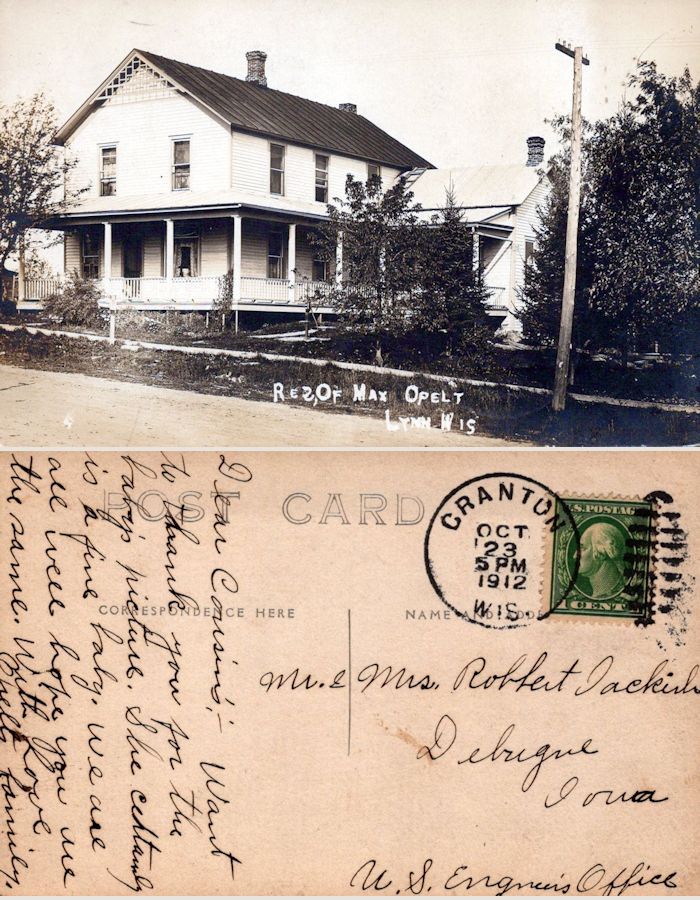 Res, Of Max Opelt
Lynn Wis
POST CARD
CORRESPONDENCE HERE
NAME AND ADD
GRANTON
OCT
23
5 PM
1912
WIS.
U.S. POSTAGE
1 CENT
Dear Cousins;- Want
to thank you for the
baby's picture. She certainly
is a fine baby. We are
are well hope you are
the same. With Love
Opelt Family.
Mr. & Mrs. Robbert Jackish
Debuque
Iowa
U.S. Engineers Office